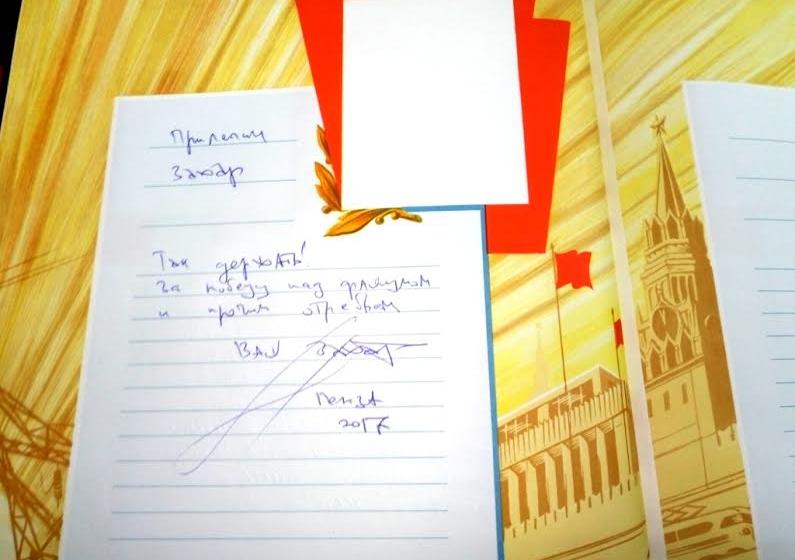 Прилепин
Захар
Так держать!
За победу над фашизмом
и прочим отребьем
Ваш Захар
Пенза
2017